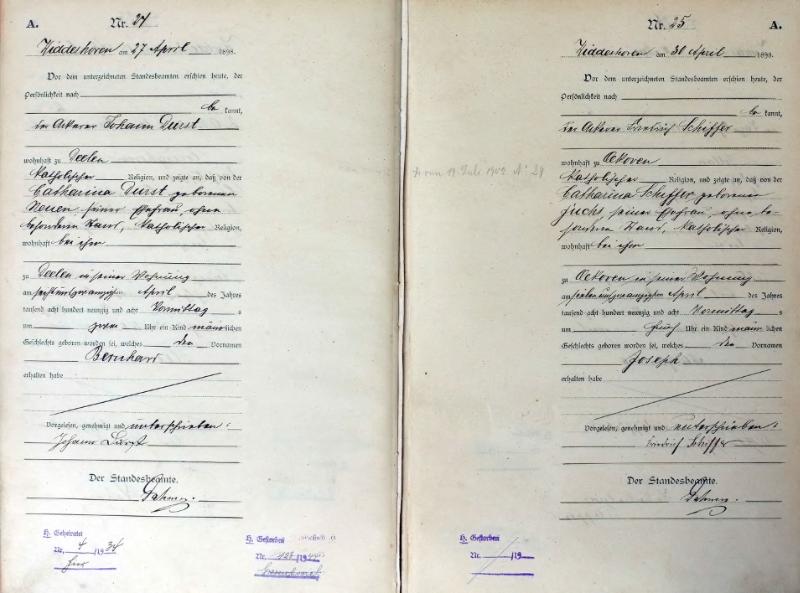 A.
Nr. 24
Widdeshoven am 27 April 1898.
Vor dem unterzeichneten Standesbeamten erschien heute, der
Persönlichkeit nach
be kannt,
der Ackerer Johann Durst
wohnhaft zu Deelen
katholischer Religion, und zeigte an, daß von der
Catharina Durst geborenen
Neuen seiner Ehefrau, ohne
besonderen Stand, katholischer Religion,
wohnhaft bei ihm
zu Deelen in seiner Wohnung
am sechsundzwanzigsten April des Jahres
tausend acht hundert neunzig und acht Vormittag s
um zwei Uhr ein Kind männlichen
Geschlechts geboren worden sei, welches den Vornamen
Bernhard
erhalten habe
Vorgelesen, genehmigt und unterschrieben:
Johann Durst
Der Standesbeamte.
Dahmen.
H. Geheiratet
Nr. 4 /1934
hier
H. Gestorben
Nr. 128 /19
Nr. 25
A.
Widdeshoven am 30 April 1898.
Vor dem unterzeichneten Standesbeamten erschien heute, der
Persönlichkeit nach
be kannt,
der Ackerer Friedrich Schiffer
wohnhaft zu Oekoven
katholischer Religion, und zeigte an, daß von der
Catharina Schiffer geborenen
Fuchs, seiner Ehefrau, ohne be-
sonderen Stand, katholischer Religion,
wohnhaft bei ihm
zu Oekoven in seiner Wohnung
am siebenundzwanzigsten April des Jahres
tausend acht hundert neunzig und acht Vormittag s
um fünf Uhr ein Kind männ lichen
Geschlechts geboren worden sei, welches den Vornamen
Joseph
erhalten habe
Vorgelesen, genehmigt und unterschrieben:
Friedrich Schiffer
Der Standesbeamte.
Dahmen.
19 Juli 1902 N° 29
H. Gestorben
/19